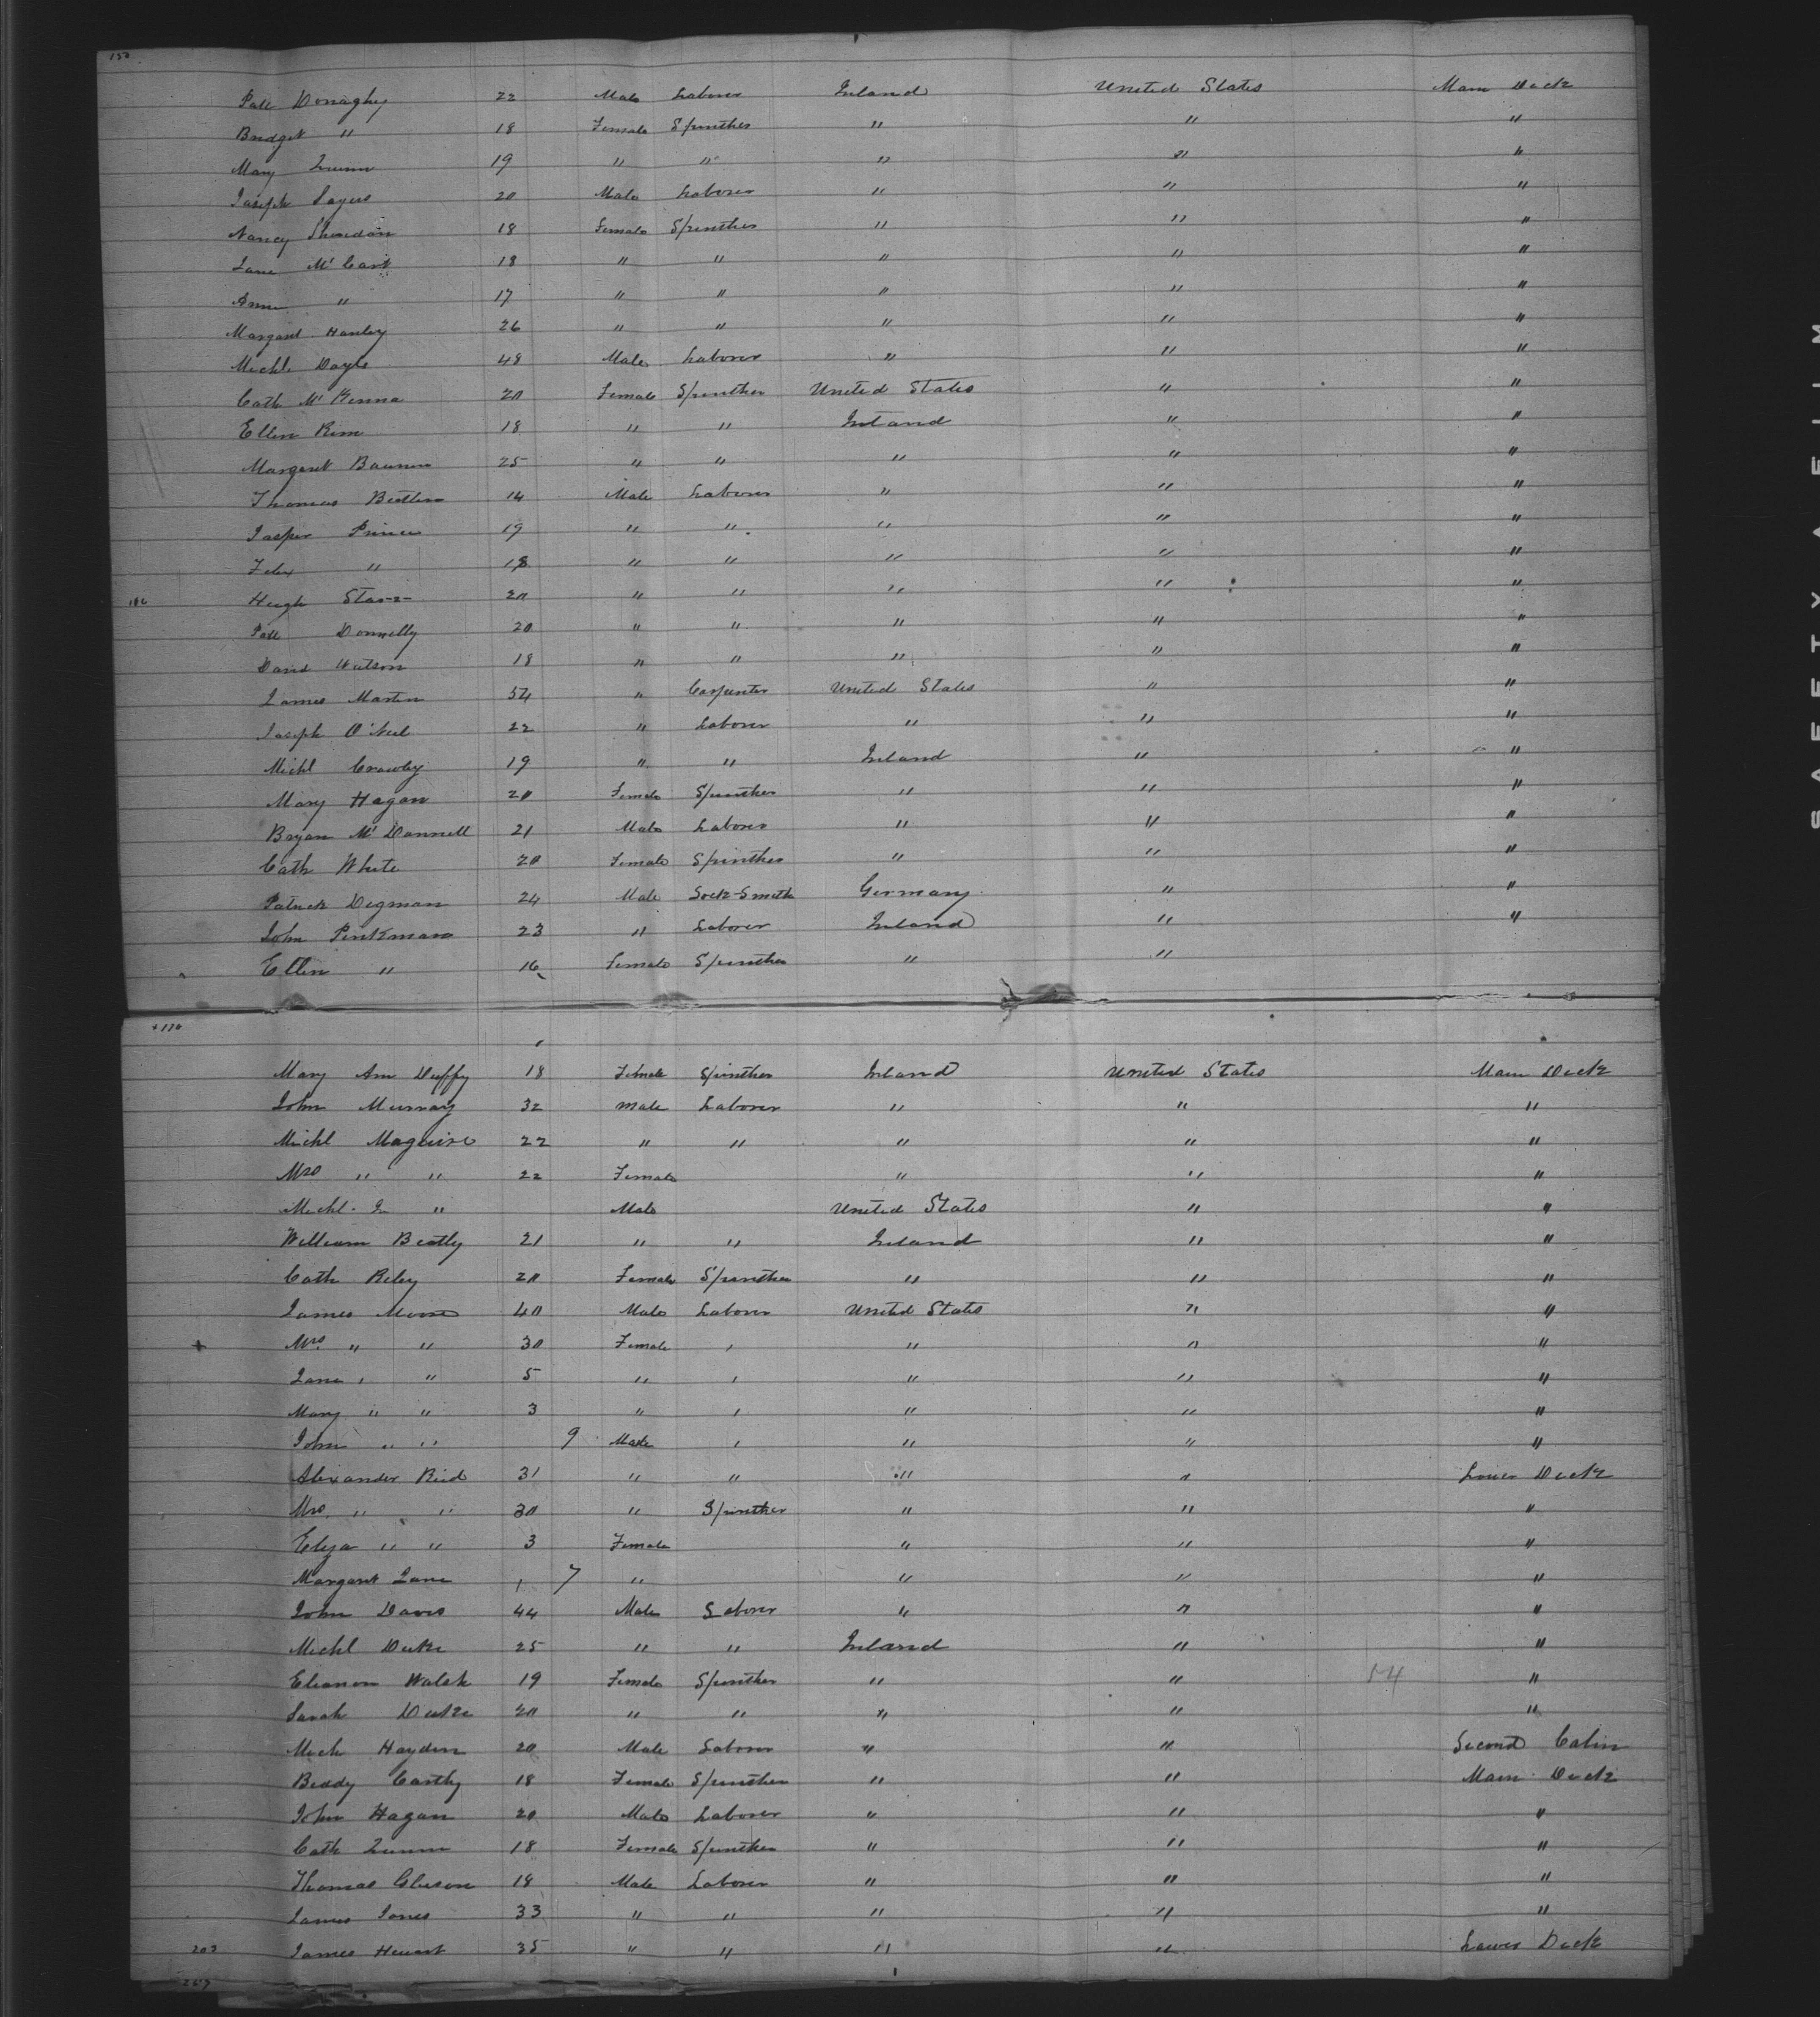 150
Patk Donaghy 22 Male Laborer Ireland United States Main Deck
Bridget " 18 Female Spinster " " "
Mary Quinn 19 " " " " "
Joseph Sayers 20 Male Laborer " " "
Nancy Sheridan 18 Female Spinster " " "
Jane McCart 18 " " " " "
Anne " 17 " " " " "
Margaret Hanley 26 " " " " "
Michl Doyle 48 Male Laborer " " "
Cath McKenna 20 Female Spinster United States " "
Ellen Kim 18 " " Ireland " "
Margaret 25 " " " " "
Thomas 14 Male Laborer " " "
Jasper Prince 19 " " " " "
Felix " 18 " " " " "
Hugh Starr 20 " " " " "
Patk Donnelly 20 " " " " "
David Watson 18 " " " " "
James Martin 54 " Carpenter United States " "
Joseph O'Neil 22 " Laborer " " "
Michl Crawley 19 " " Ireland " "
Mary Hagan 20 Female Spinster " " "
Bryan McDannell 21 Male Laborer " " "
Cath White 20 Female Spinster " " "
Patrick Degman 24 Male Lock-Smith Germany " "
John Pinkman 23 " Laborer Ireland " "
Ellen " 16 Female Spinster " "
Mary Ann Duffy 18 Female Spinster Ireland United States Main Deck
John Murray 32 Male Laborer " " "
Michl Maguire 22 " " " " "
Mrs " " 22 Female " " "
Michl Jr " Male United States " "
William Beatty 21 " " Ireland " "
Cath Riley 20 Female Spinster " " "
James Moore 40 Male Laborer United States " "
+ Mrs. " " 30 Female " " " "
Jane " " 5 " " " " "
Mary " " 3 " " " " "
John " " 9 Male " " " "
Alexander Reid 31 " " " " Lower Deck
Mrs. " " 30 " Spinster " " "
Eliza " " 3 Female " " "
Margaret Jane 1 7 " " " "
John Davis 44 Male Laborer " " "
Michl Duke 25 " " Ireland " "
Eleanor Walsh 19 Female Spinster " " 14 "
Sarah Duke 20 " " " " "
Mich Hayden 20 Male Laborer " " Second Cabin
Biddy Carthy 18 Female Spinster " " Main Deck
John Hagan 20 Male Laborer " " "
Cath Quinn 18 Female Spinster " " "
Thomas Gleeson 18 Male Laborer " " "
James Jones 33 " " " " "
203 James 35 " " " " Lower Deck